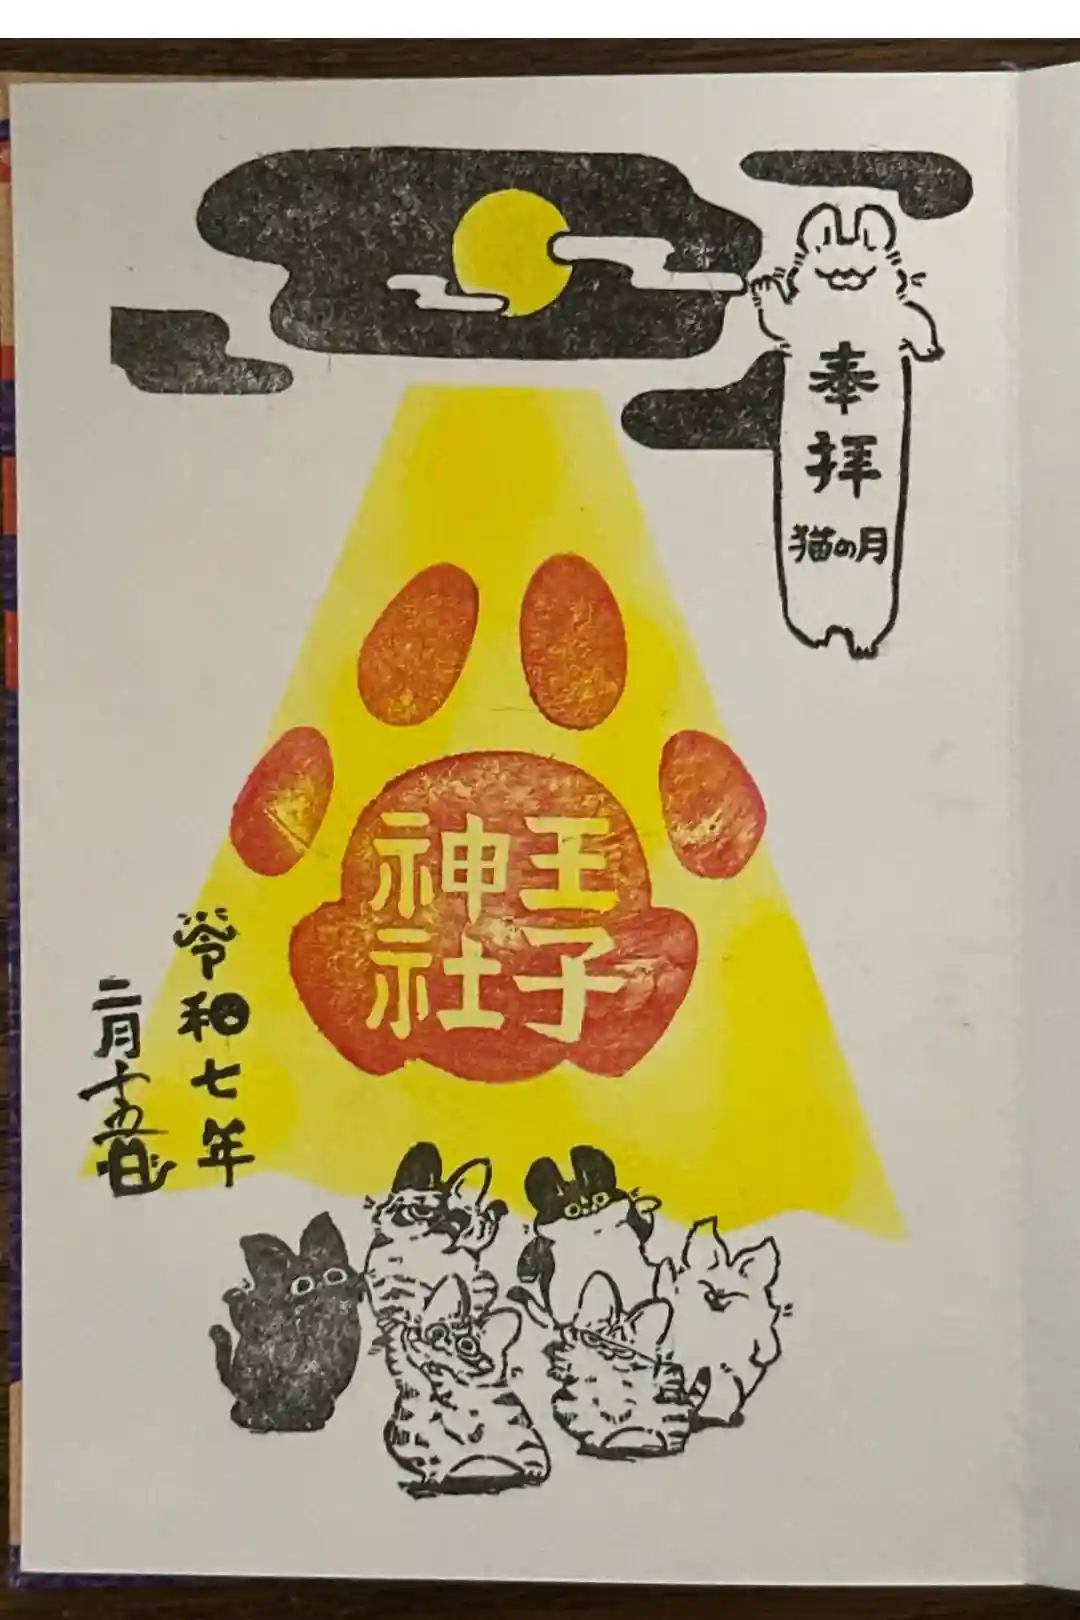 奉拝
猫の月
王子
神社
令和七年
二月十五日